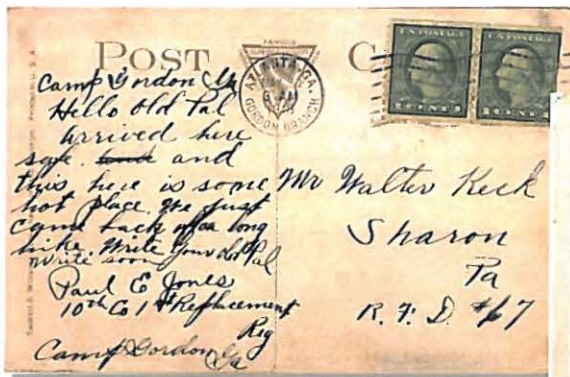 POST C
FAMOUS
ATLANTA, GA.
GORDON BRANCH
U.S. POSTAGE
U.S. POSTAGE
Camp Gordon Ga
Hello Old Pal
arrived here
safe. and
this here is some
hot place. We just
came back off a long
hike. Write your old Pal
write soon
Paul E Jones
10th Co 1st Replacement
Reg
Camp Gordon Ga
Mr Walter Keck
Sharon
Pa
R. F. D. #67